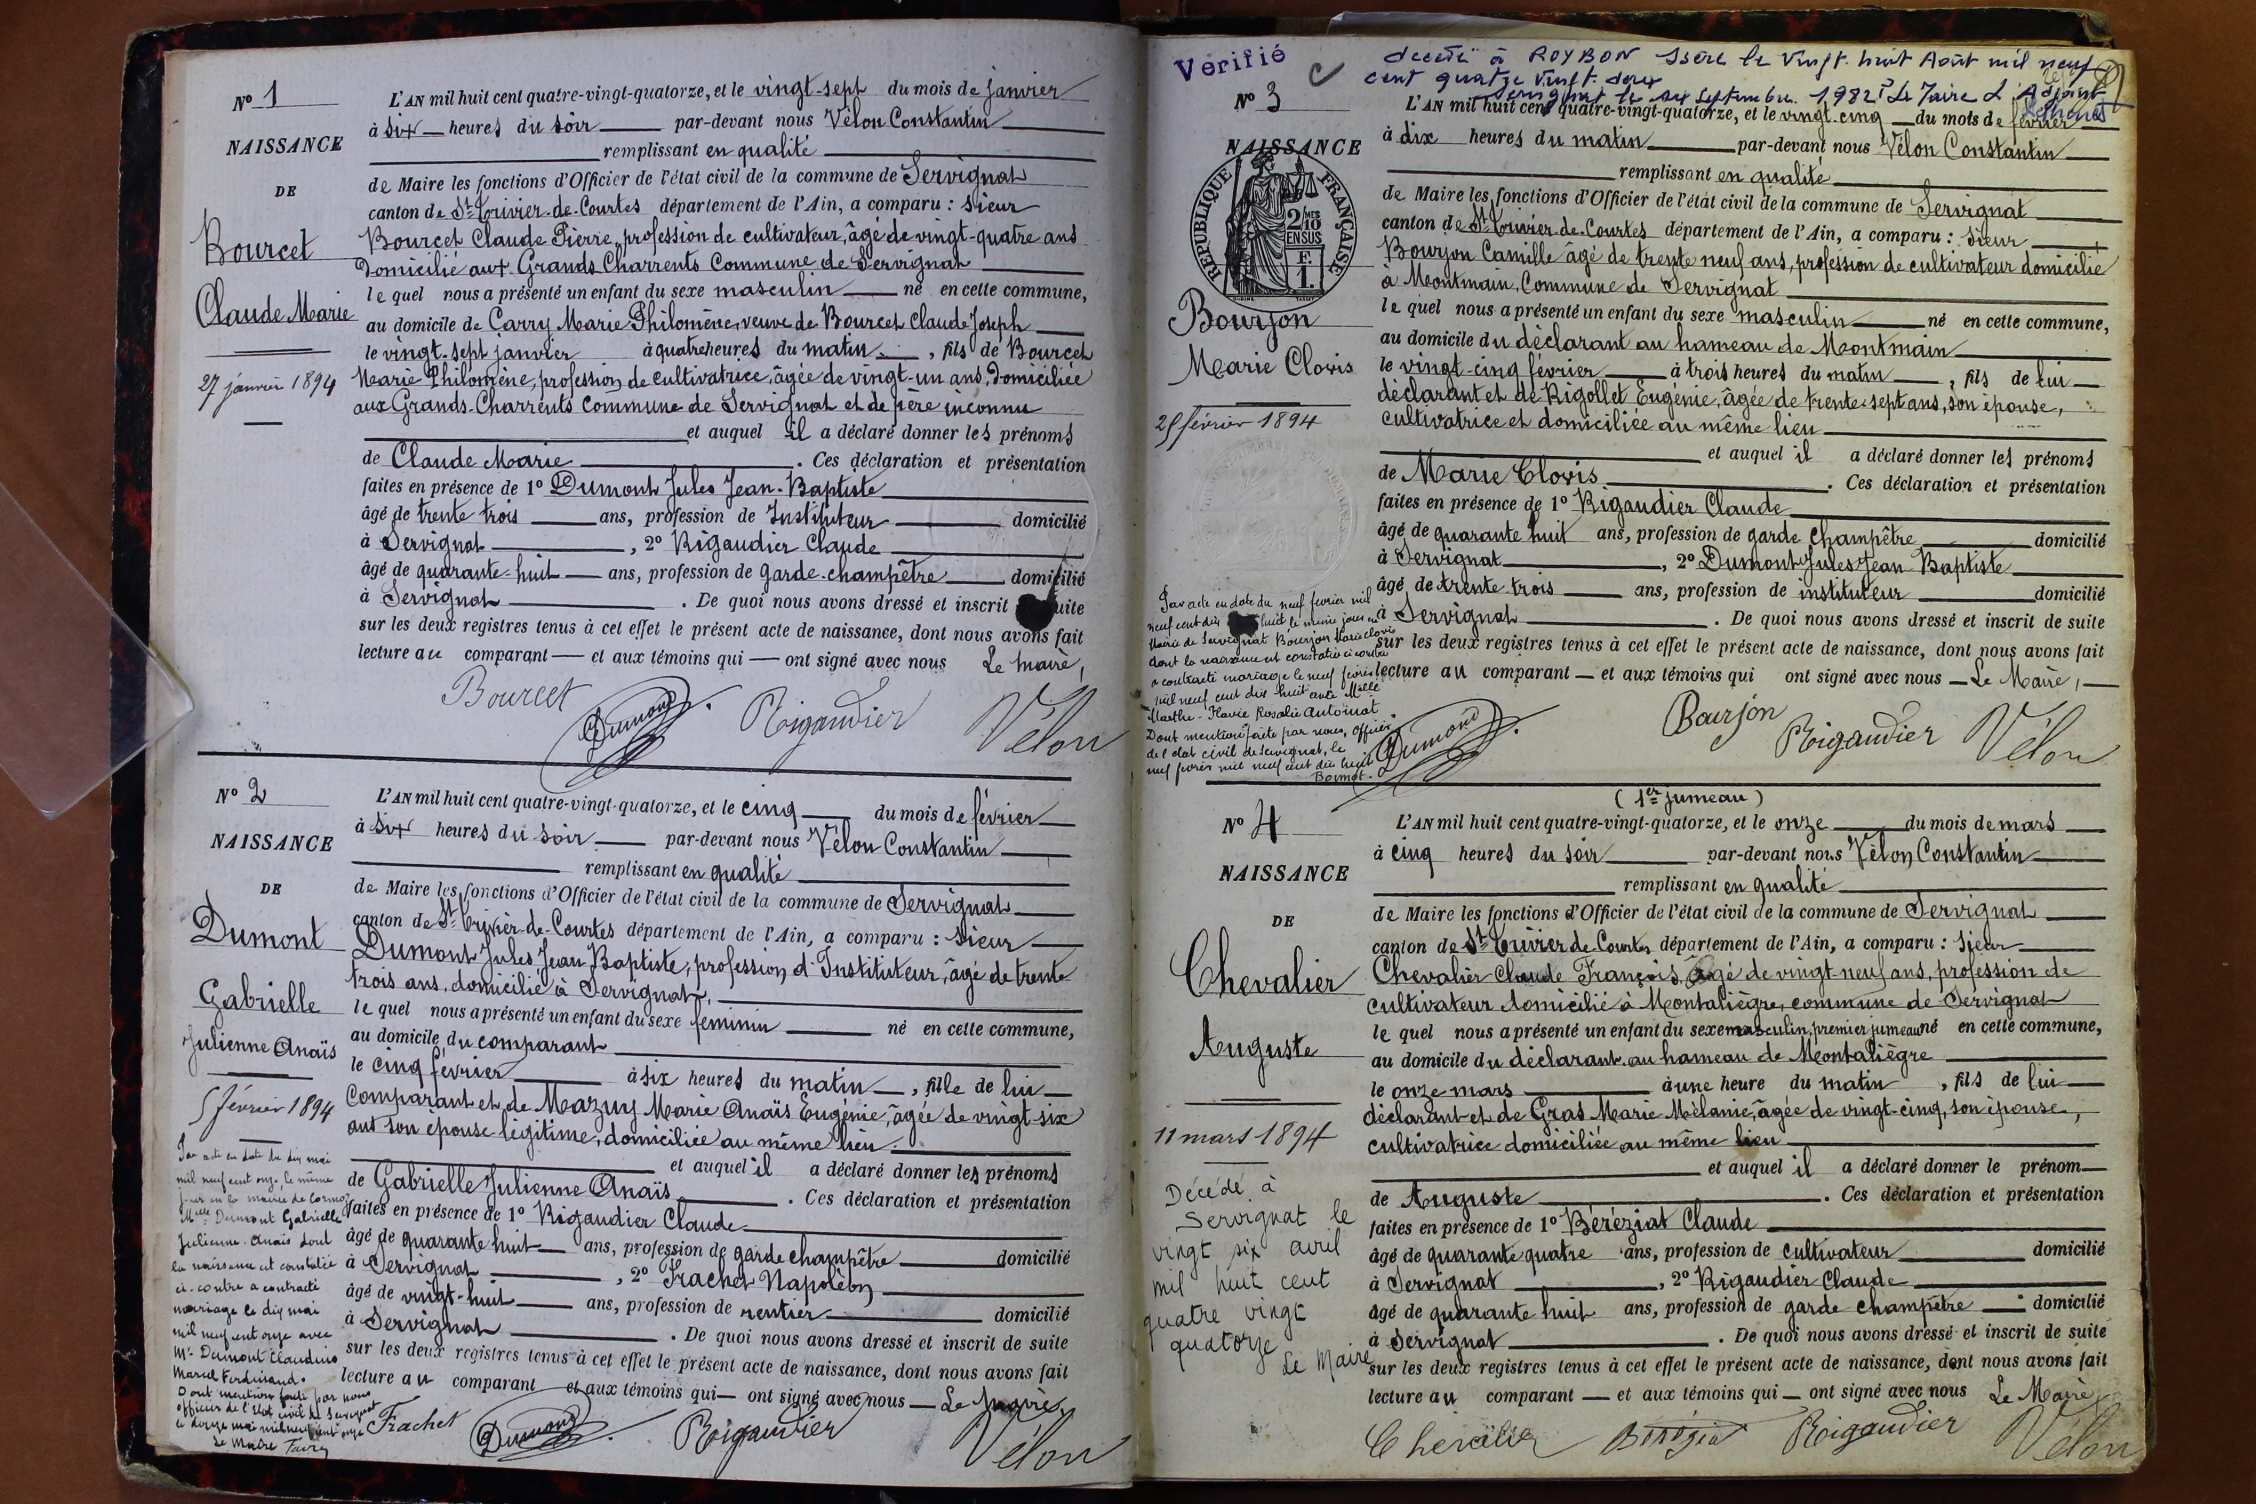 Nº 1
NAISSANCE
DE
Bourcet
Claude Marie
27 janvier 1894
L'AN mil huit cent quatre-vingt-quatorze, et le vingt-sept du mois de janvier
à six heures du soir par-devant nous Vélon Constantin
remplissant en qualité
de Maire les fonctions d'Officier de l'état civil de la commune de Servignat
canton de St Trivier-de-Courtes département de l'Ain, a comparu : sieur
Bourcet Claude Pierre, profession de cultivateur, âgé de vingt-quatre ans
domicilié aux Grands Charrents Commune de Servignat
lequel nous a présenté un enfant du sexe masculin né en cette commune,
au domicile de Carry Marie Philomène, veuve de Bourcet Claude Joseph
le vingt-sept janvier à quatre heures du matin, fils de Bourcet
Marie Philomène, profession de cultivatrice, âgée de vingt-un ans, domiciliée
aux Grands-Charrents Commune de Servignat et de père inconnu
et auquel il a déclaré donner les prénoms
de Claude Marie. Ces déclaration et présentation
faites en présence de 1º Dumont Jules Jean-Baptiste
âgé de trente trois ans, profession de Instituteur domicilié
à Servignat, 2º Rigaudier Claude
âgé de quarante-huit ans, profession de garde-champêtre domicilié
à Servignat. De quoi nous avons dressé et inscrit suite
sur les deux registres tenus à cet effet le présent acte de naissance, dont nous avons fait
lecture au comparant et aux témoins qui ont signé avec nous Le Maire,
Bourcet Dumont Rigaudier Vélon
Nº 2
NAISSANCE
DE
Dumont
Gabrielle
Julienne Anaïs
5 février 1894
Par acte en date du dix mai
mil neuf cent onze, le même
jour en la mairie de Cormoz
Melle Dumont Gabrielle
Julienne-Anaïs dont
la naissance est constatée
ci-contre a contracté
mariage le dix mai
mil neuf cent onze avec
Mr Dumont Claudius
Marcel Ferdinand.
Dont mention faite par nous
officier de l'état civil de Servignat
le douze mai mil neuf cent onze
Le Maire
L'AN mil huit cent quatre-vingt-quatorze, et le cinq du mois de février
à six heures du soir par-devant nous Vélon Constantin
remplissant en qualité
de Maire les fonctions d'Officier de l'état civil de la commune de Servignat
canton de St Trivier-de-Courtes département de l'Ain, a comparu : sieur
Dumont Jules Jean Baptiste, profession d'Instituteur, âgé de trente
trois ans, domicilié à Servignat,
lequel nous a présenté un enfant du sexe féminin né en cette commune,
au domicile du comparant
le cinq février à six heures du matin, fille de lui
comparant et de Mazuy Marie Anaïs Eugénie, âgée de vingt-six
ans son épouse légitime, domiciliée au même lieu.
et auquel il a déclaré donner les prénoms
de Gabrielle Julienne Anaïs. Ces déclaration et présentation
faites en présence de 1º Rigaudier Claude
âgé de quarante huit ans, profession de garde champêtre domicilié
à Servignat, 2º Frachet Napoléon
âgé de vingt-huit ans, profession de rentier domicilié
à Servignat. De quoi nous avons dressé et inscrit de suite
sur les deux registres tenus à cet effet le présent acte de naissance, dont nous avons fait
lecture au comparant et aux témoins qui ont signé avec nous Le Maire,
Frachet Dumont Rigaudier Vélon
Vérifié
décédé à ROYBON Isère le vingt huit Août mil neuf
cent quatre vingt-deux
Servignat le six septembre 1982 Le Maire L'Adjoint
Nº 3
NAISSANCE
RÉPUBLIQUE FRANÇAISE
2/10 MES
EN SUS
F.
1.
Bourjon
Marie Clovis
25 février 1894
Par acte en date du neuf février mil
neuf cent dix huit le même jour en
Mairie de Servignat Bourjon Marie Clovis
dont la naissance est constatée ci-contre
a contracté mariage le neuf février
mil neuf cent dix huit avec Melle
Marthe-Flavie Rosalie Antoinat.
Dont mention faite par nous, Officier
de l'état civil de Servignat, le
neuf février mil neuf cent dix huit
L'AN mil huit cent quatre-vingt-quatorze, et le vingt-cinq du mois de février
à dix heures du matin par-devant nous Vélon Constantin
remplissant en qualité
de Maire les fonctions d'Officier de l'état civil de la commune de Servignat
canton de St Trivier-de-Courtes département de l'Ain, a comparu : sieur
Bourjon Camille âgé de trente neuf ans, profession de cultivateur domicilié
à Montmain, Commune de Servignat
lequel nous a présenté un enfant du sexe masculin né en cette commune,
au domicile du déclarant au hameau de Montmain
le vingt-cinq février à trois heures du matin, fils de lui
déclarant et de Rigollet Eugénie, âgée de trente-sept ans, son épouse,
cultivatrice et domiciliée au même lieu
et auquel il a déclaré donner les prénoms
de Marie Clovis. Ces déclaration et présentation
faites en présence de 1º Rigaudier Claude
âgé de quarante huit ans, profession de garde champêtre domicilié
à Servignat, 2º Dumont Jules Jean Baptiste
âgé de trente-trois ans, profession de instituteur domicilié
à Servignat. De quoi nous avons dressé et inscrit de suite
sur les deux registres tenus à cet effet le présent acte de naissance, dont nous avons fait
lecture au comparant et aux témoins qui ont signé avec nous Le Maire,
Dumont Bourjon Rigaudier Vélon
Nº 4
NAISSANCE
DE
Chevalier
Auguste
11 mars 1894
Décédé à
Servignat le
vingt six avril
mil huit cent
quatre vingt
quatorze
Le Maire
(1er jumeau)
L'AN mil huit cent quatre-vingt-quatorze, et le onze du mois de mars
à cinq heures du soir par-devant nous Vélon Constantin
remplissant en qualité
de Maire les fonctions d'Officier de l'état civil de la commune de Servignat
canton de St Trivier de Courtes département de l'Ain, a comparu : sieur
Chevalier Claude François, âgé de vingt-neuf ans, profession de
cultivateur domicilié à Montaliègre, commune de Servignat
lequel nous a présenté un enfant du sexe masculin, premier jumeau né en cette commune,
au domicile du déclarant au hameau de Montaliègre
le onze mars à une heure du matin, fils de lui
déclarant et de Gras Marie Mélanie, âgée de vingt-cinq, son épouse,
cultivatrice domiciliée au même lieu
et auquel il a déclaré donner le prénom
de Auguste. Ces déclaration et présentation
faites en présence de 1º Béréziat Claude
âgé de quarante quatre ans, profession de cultivateur domicilié
à Servignat, 2º Rigaudier Claude
âgé de quarante huit ans, profession de garde champêtre domicilié
à Servignat. De quoi nous avons dressé et inscrit de suite
sur les deux registres tenus à cet effet le présent acte de naissance, dont nous avons fait
lecture au comparant et aux témoins qui ont signé avec nous Le Maire,
Chevalier Béréziat Rigaudier Vélon